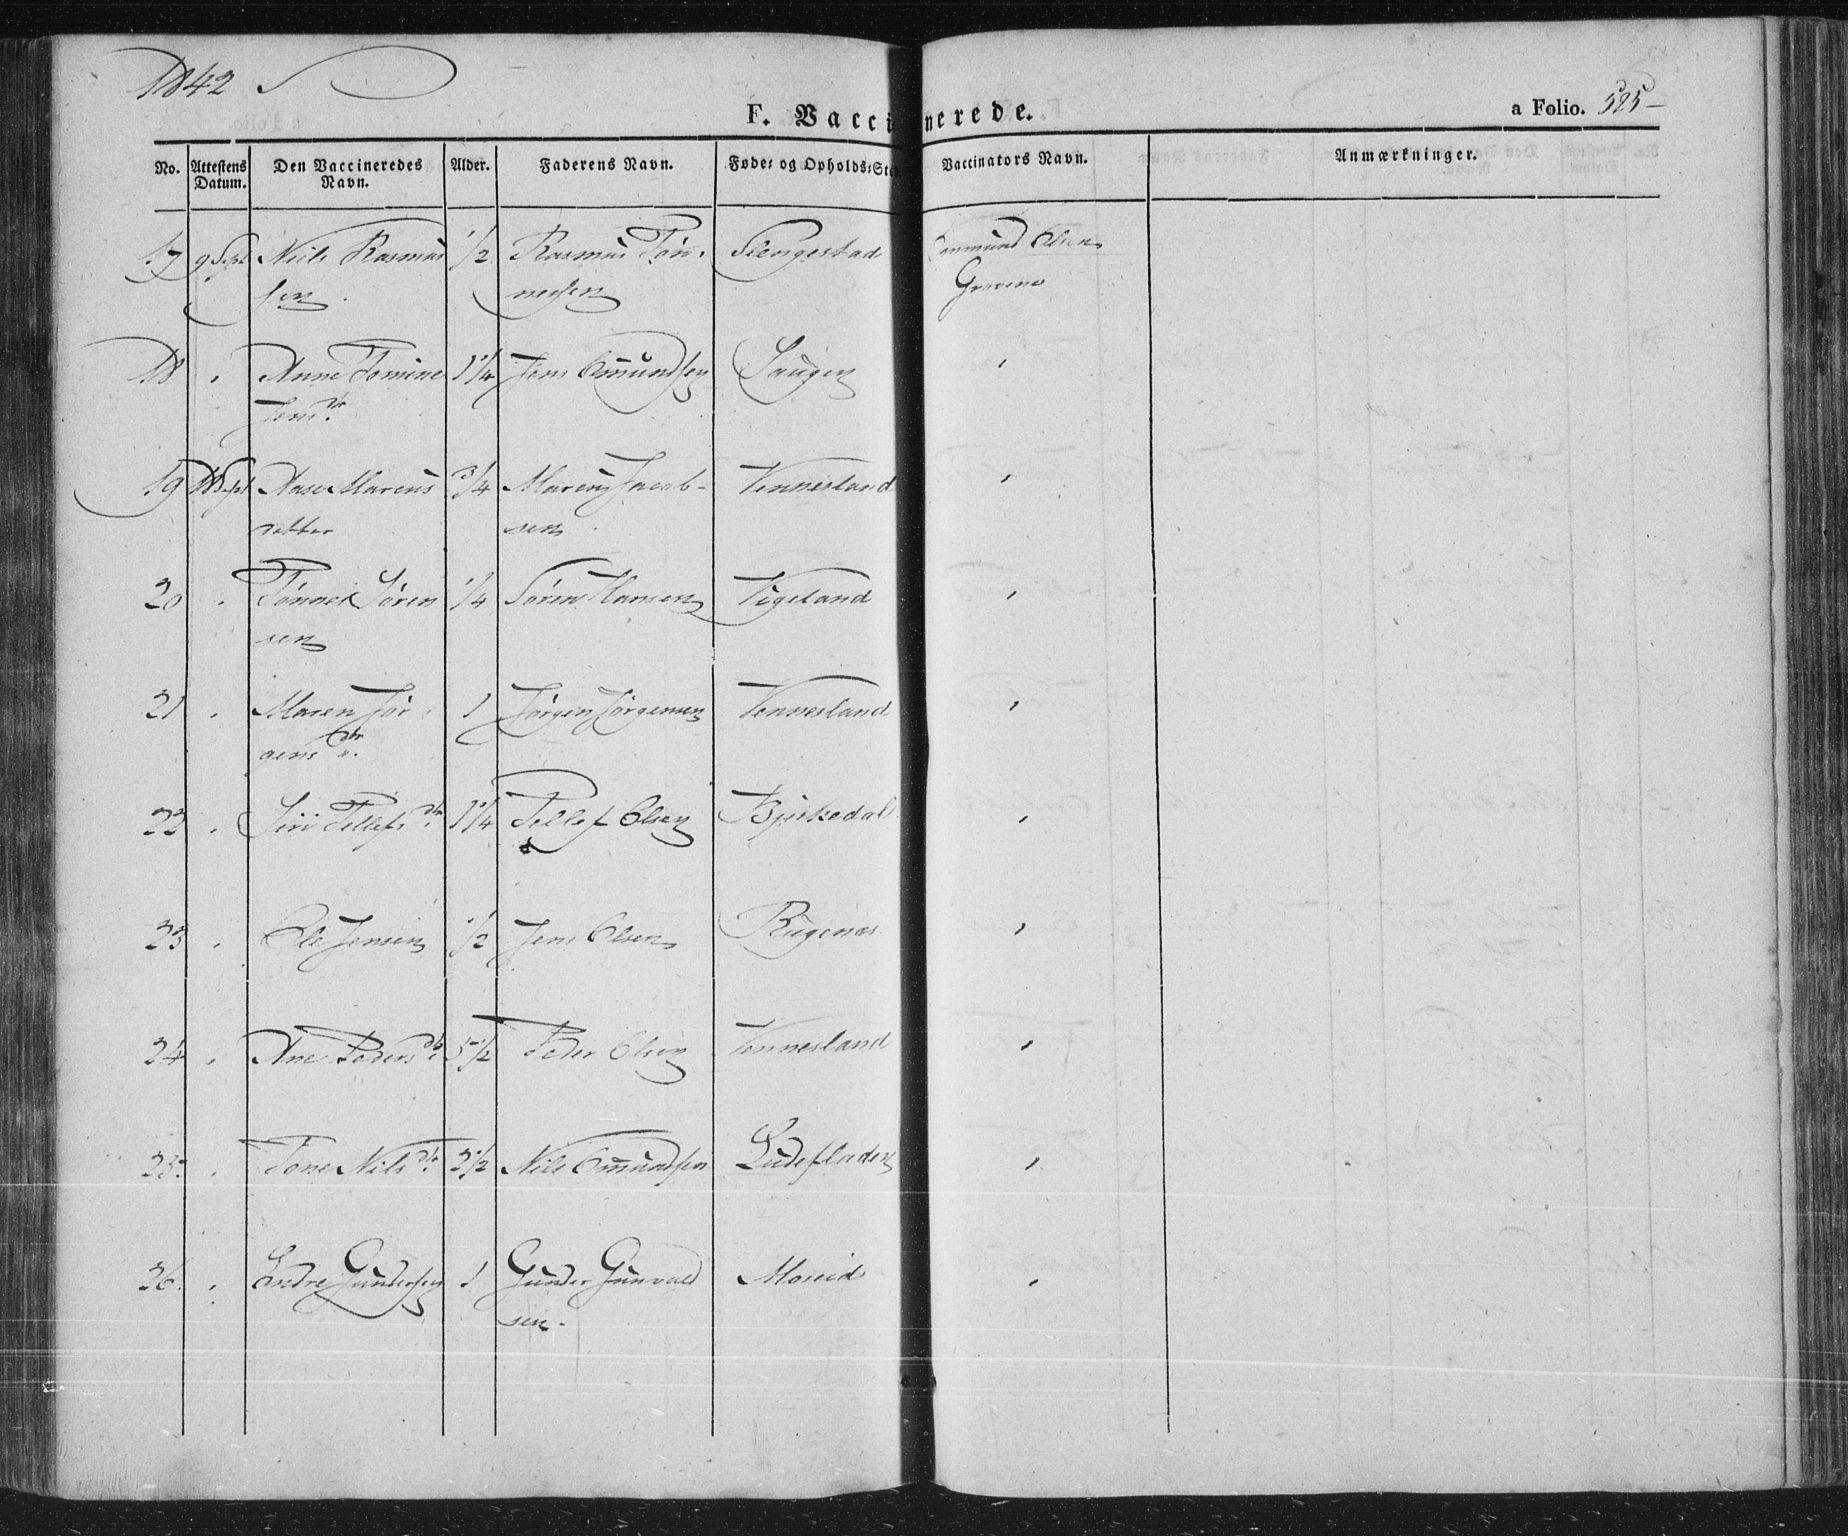 1842
F. Vaccinerede.
a Folio. 525
No. Attestens Datum. Den Vaccineredes Navn. Alder. Faderens Navn. Føde: og Opholds:Sted Vaccinators Navn. Anmærkninger.
17 9 Sept Niels Rasmus 1/2 Rasmus Tøn Slengestad Ommund Olsen
sen nesen Gravene
18 Anne Tomine 1 1/4 Jens Omundsen Haugen
Jensdr.
19 18 Sept Aase Marcus 3/4 Marcus Jacob- Vennesland
datter sen
20 Tønnes Søren 1/4 Søren Hansen Vigeland
sen
21 Maren Jør 1 Jørgen Jørgensen Vennesland
gensdr.
22 Siri Tellefsdr. 1 1/4 Tellef Olsen Bjirkedal
23 Ole Jensen 1/2 Jens Olsen Rugenæs
24 Ane Pedersdr. 5 1/2 Peder Olsen Vennesland
25 Tone Nilsdr. 2 1/2 Nils Omundsen Ludefladen
26. Endre Gundersen 1 Gunder Gunvald Moseid
sen.